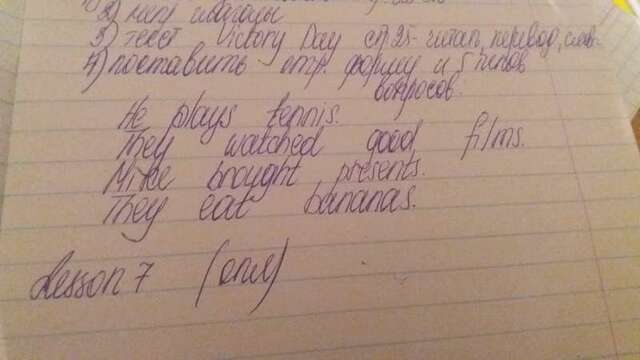 2) неправ. глаголы
3) текст Victory Day стр 25 - читать, перевод, слов-
4) поставить отр. форму и 5 типов
вопросов.
He plays tennis.
They watched good films.
Mike brought presents.
They eat bananas.
Lesson 7